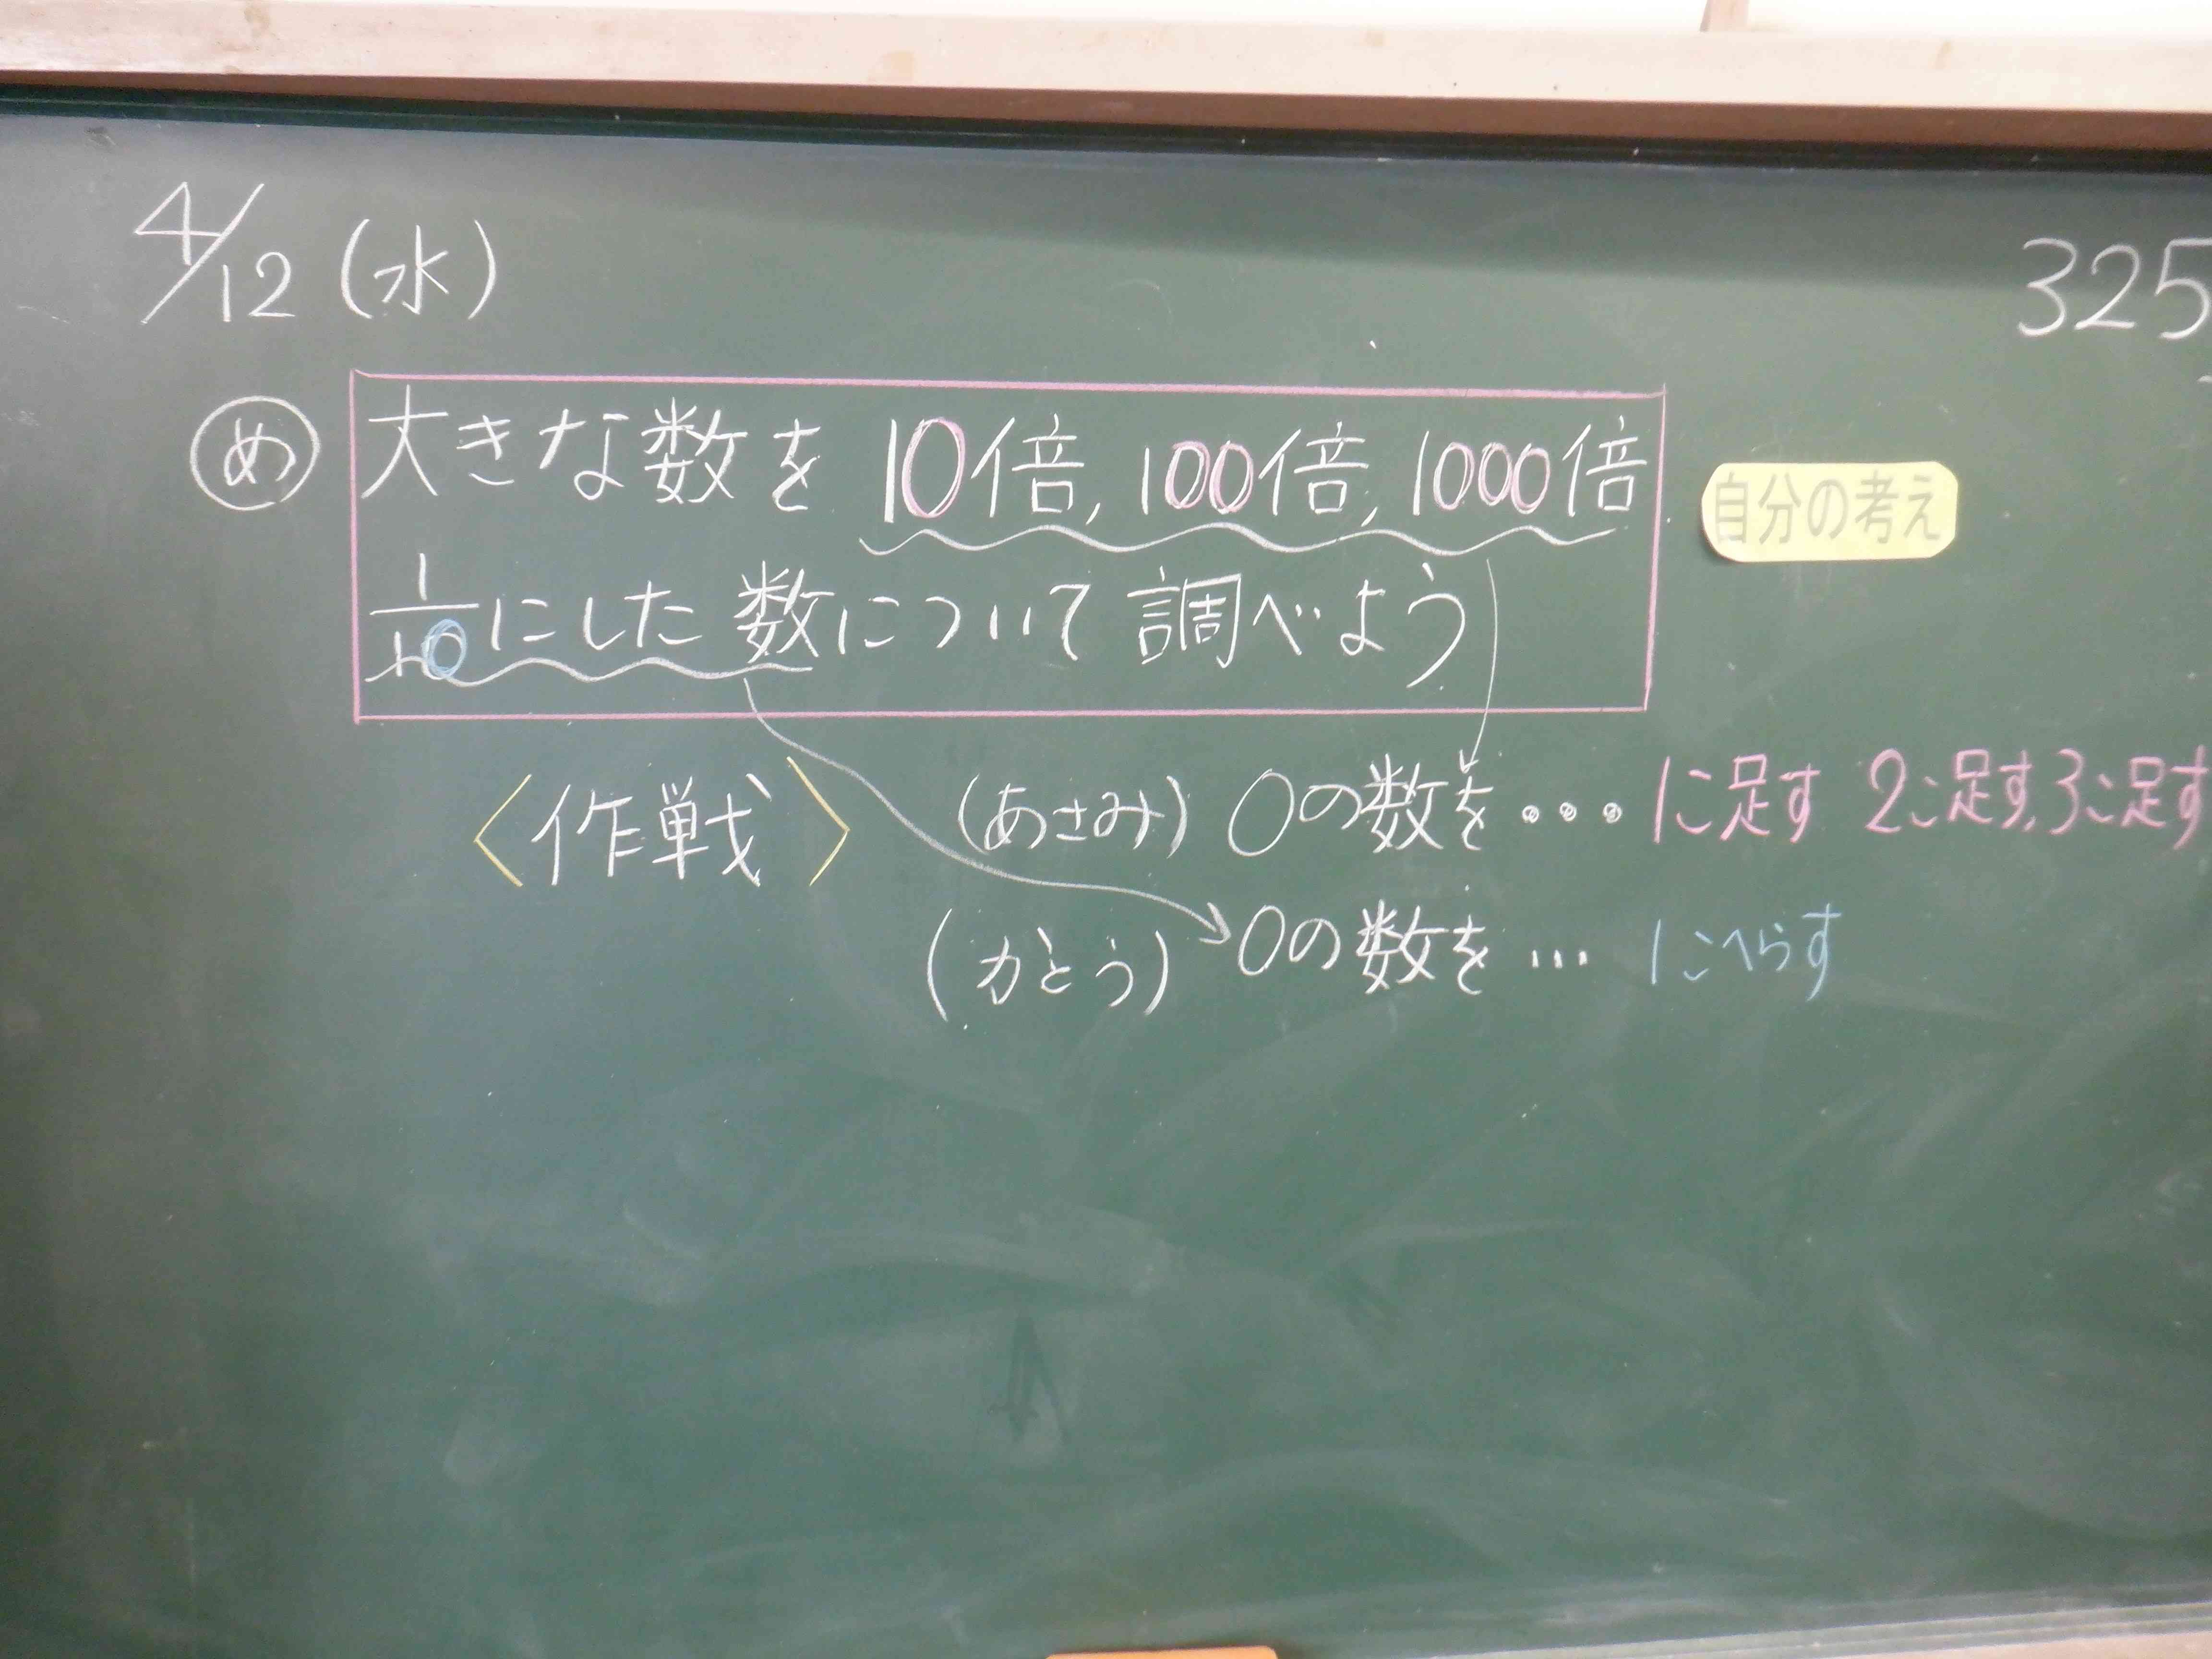 4/12(水)
325
め
大きな数を10倍,100倍,1000倍
1/10にした数について調べよう
自分の考え
〈作戦〉
(あさみ) 0の数を・・・1こ足す 2こ足す,3こ足す
(かとう) 0の数を… 1こへらす